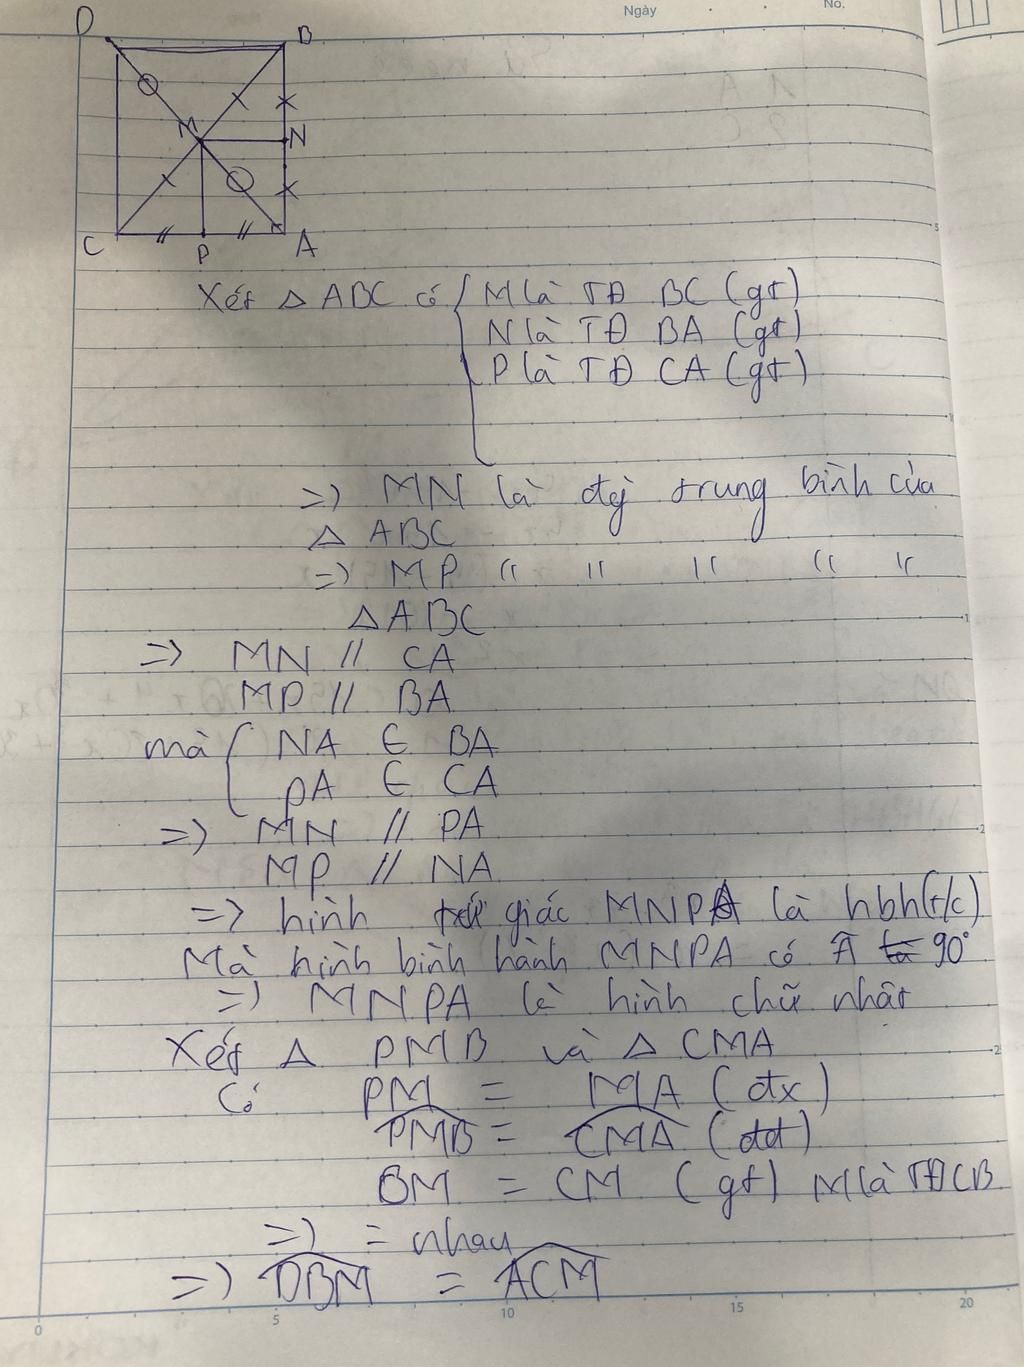 Ngày
No.
D
B
M
N
C
P
A
Xét △ ABC có { M là TĐ BC (gt)
N là TĐ BA (gt)
P là TĐ CA (gt)
=> MN là đg trung bình của
△ ABC
=> MP " " " " "
△ ABC
=> MN // CA
MP // BA
mà { NA ∈ BA
PA ∈ CA
=> MN // PA
MP // NA
=> hình tứ giác MNPA là hbh (t/c)
Mà hình bình hành MNPA có Â là 90°
=> MNPA là hình chữ nhật
Xét △ DMB và △ CMA
Có DM = MA (đx)
DMB = CMA (đđ)
BM = CM (gt) M là TĐ CB
=> = nhau
=> DBM = ACM
0 5 10 15 20